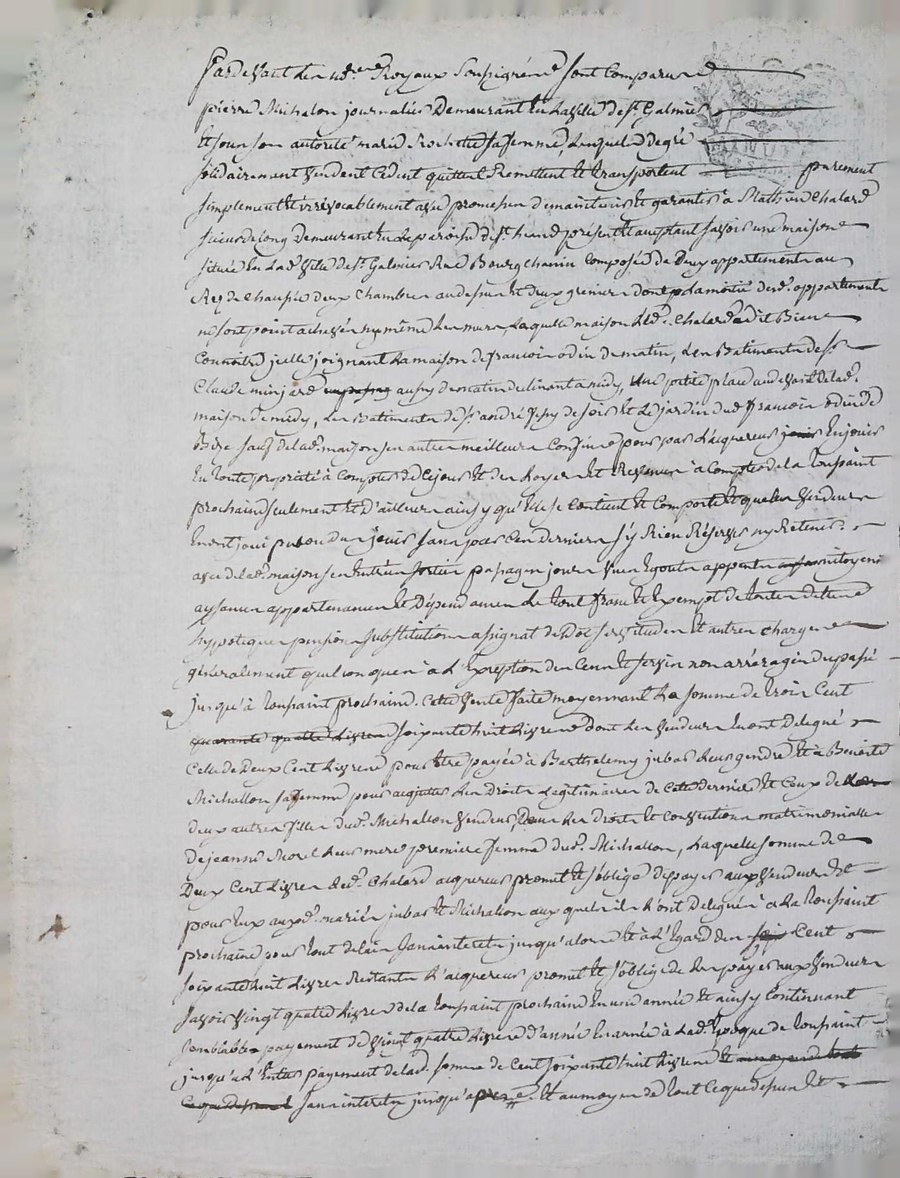 Pardevant les no.res Royaux Soussignés sont Comparus
pierre Michalon journalier Demeurant En La ville de st. Galmier
Et sous son autorité marie Rochette sa femme, Lesquels de gré
solidairement vendent Cedent quittent Remettent Et transportent purement
simplement Et irrévocablement avec promesse de maintenir Et garantir à Mathieu Chalard
scieur de long Demeurant En La paroisse de st. present Et acceptant savoir une maison
située En Lad. ville de st. Galmier Rue Bourgchanin Composée de Deux appartements au
Rez de chaussée deux chambres audessus Et deux greniers dont La moitié desd. appartements
ne sont point achevés ny même Les murs Laquelle maison Led. Chalard a dit Bien
Connoitre jcelle joignant La maison de françois odin de matin, Les Batiments de sr.
Claude minjard aussy de matin declinant à midy, une petite place audevant de lad.
maison de midy, Les Batiments de sr. andré de soir Et Le jardin dud. françois odin de
Bize sauf de lad. maison ses autres meilleurs Confins pour par L'acquereur En jouir
En toute propriété à Compter de Cejour Et des Loyers Et Revenus à Compter de la toussaint
prochaine seulement Et d'ailleurs ainsy qu'Elle se Contient Et Comporte Et que Les vendeurs
En ont joui pu ou du jouir sans par Ces derniers s'y Rien Réserver ny Retenir.
avec de lad. maison ses Entrées sorties passages jours vues Egouts mitoyens
aysances appartenances Et Dépendances Le tout franc Et Exempt de toutes dettes
hypoteques pension substitution assignat de Dot servitudes Et autres charges
généralement quelconques à L'Exception des Cens Et servis non arréragés du passé
jusqu'à toussaint prochaine. Cette vente faite moyennant La somme de trois Cent
quarante quatre Livres soixante huit Livres dont Les vendeurs En ont Delegué
Celle de Deux Cent Livres pour Etre payée à Barthelemy jubar Leur gendre Et à Benoite
Michallon sa femme pour acquitter Les Droits Legitimaires de Cette derniere Et Ceux de
deux autres filles dud. Michallon vendeur, Dans Les Droits Et Constitutions matrimonialles
De jeanne Morel Leur mere premiere femme dud. Michallon, Laquelle somme de
Deux Cent Livres Led. Chalard acquereur promet Et s'oblige de payer aux vendeurs Et
pour Eux auxd. mariés jubar Et Michallon auxquels ils L'ont Deleguée à La toussaint
prochaine pour tout delai sans interets jusqu'alors Et à L'Egard des Cent
soixante huit Livres Restants L'acquereur promet Et s'oblige de Les payer aux vendeurs
savoir vingt quatre Livres de la toussaint prochaine En une année Et ainsy Continuant
semblables payement de vingt quatre Livres d'année En année à Lad. Epoque de toussaint
jusqu'à L'Entier payement de lad. somme de Cent soixante huit Livres Et au moyen de tout
Ce que dessus sans interets jusqu'à Et au moyen de tout Ce que dessus Et